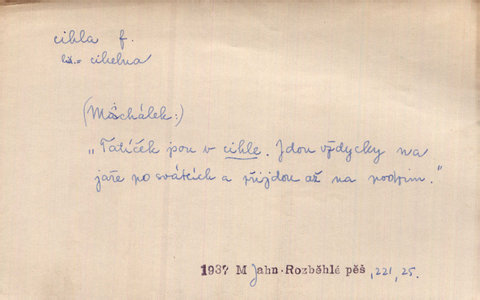 cihla f.
= cihelna
(Máchálek:)
„Tatíček jsou v cihle. Jdou vždycky na
jaře po svátcích a přijdou až na podzim."
1937 M Jahn-Rozběhlé pěš ,221, 25.